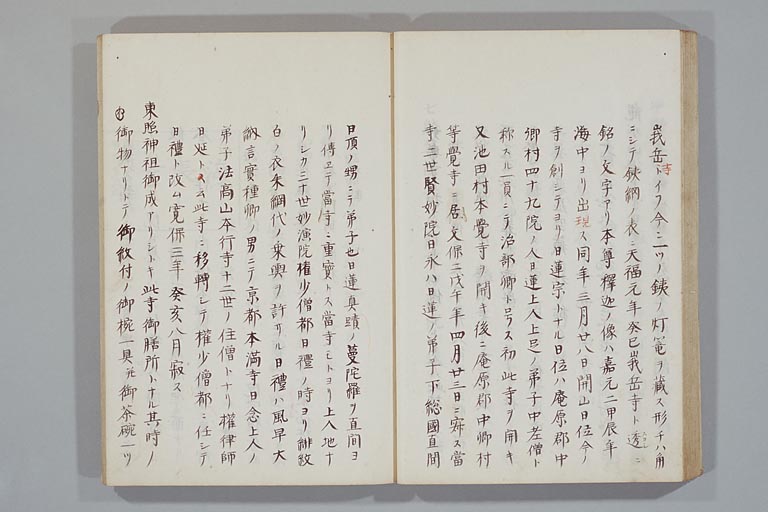 峩岳寺トイフ今ニ二ツノ鉄ノ灯篭ヲ蔵ス形チハ角
ニシテ鉄網ノ表ニ天福元年癸巳峩岳寺ト透シ
銘ノ文字アリ本尊釋迦ノ像ハ嘉元二甲辰年
海中ヨリ出現ス同年三月廿八日開山日位今ノ
寺ヲ創シテヨリ日蓮宗トナル日位ハ庵原郡中
郷村四十九院ノ人日蓮上人上足ノ弟子中老僧ト
称スル一員ニテ治部卿ト号ス初此寺ヲ開キ
又池田村本覺寺ヲ開キ後ニ庵原郡中郷村
等覺寺ニ居文保二戊午年四月廿三日ニ寂ス當
寺二世賢妙院日永ハ日蓮ノ弟子下総國直間
日頂ノ甥ニテ弟子也日蓮真蹟ノ曼陀羅ヲ直間ヨ
リ傳ヱテ當寺ニ重寳トス當寺モトヨリ上人地ナ
リシカ三十世妙演院権少僧都日禮ノ時ヨリ緋紋
白ノ衣朱網代ノ乗輿ヲ許サル日禮ハ風早大
納言實種卿ノ男ニテ京都本満寺日念上人ノ
弟子法高山本行寺十二世ノ住僧トナリ權律師
日延トス此寺ニ移轉シテ權少僧都ニ任シテ
日禮ト改ム寛保三年癸亥八月寂ス
東照神祖御成アリシトキ此寺御膳所トナル其時ノ
御物ナリトテ御紋付ノ御椀一具元御茶碗一ツ